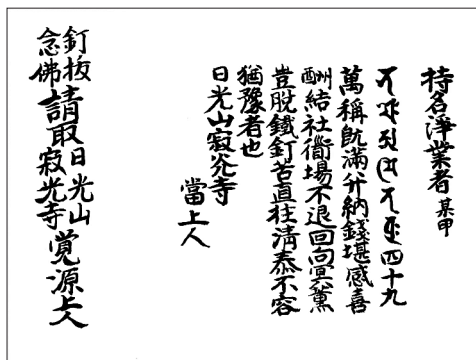 持名淨業者 某甲
四十九
萬稱既滿并納錢堪感喜
酬結社衜場不退回向冥薰
豈脱鐵釘苦直往淸泰不容
猶豫者也
日光山寂光寺
當上人
釘抜念佛請取日光山寂光寺覚源上人